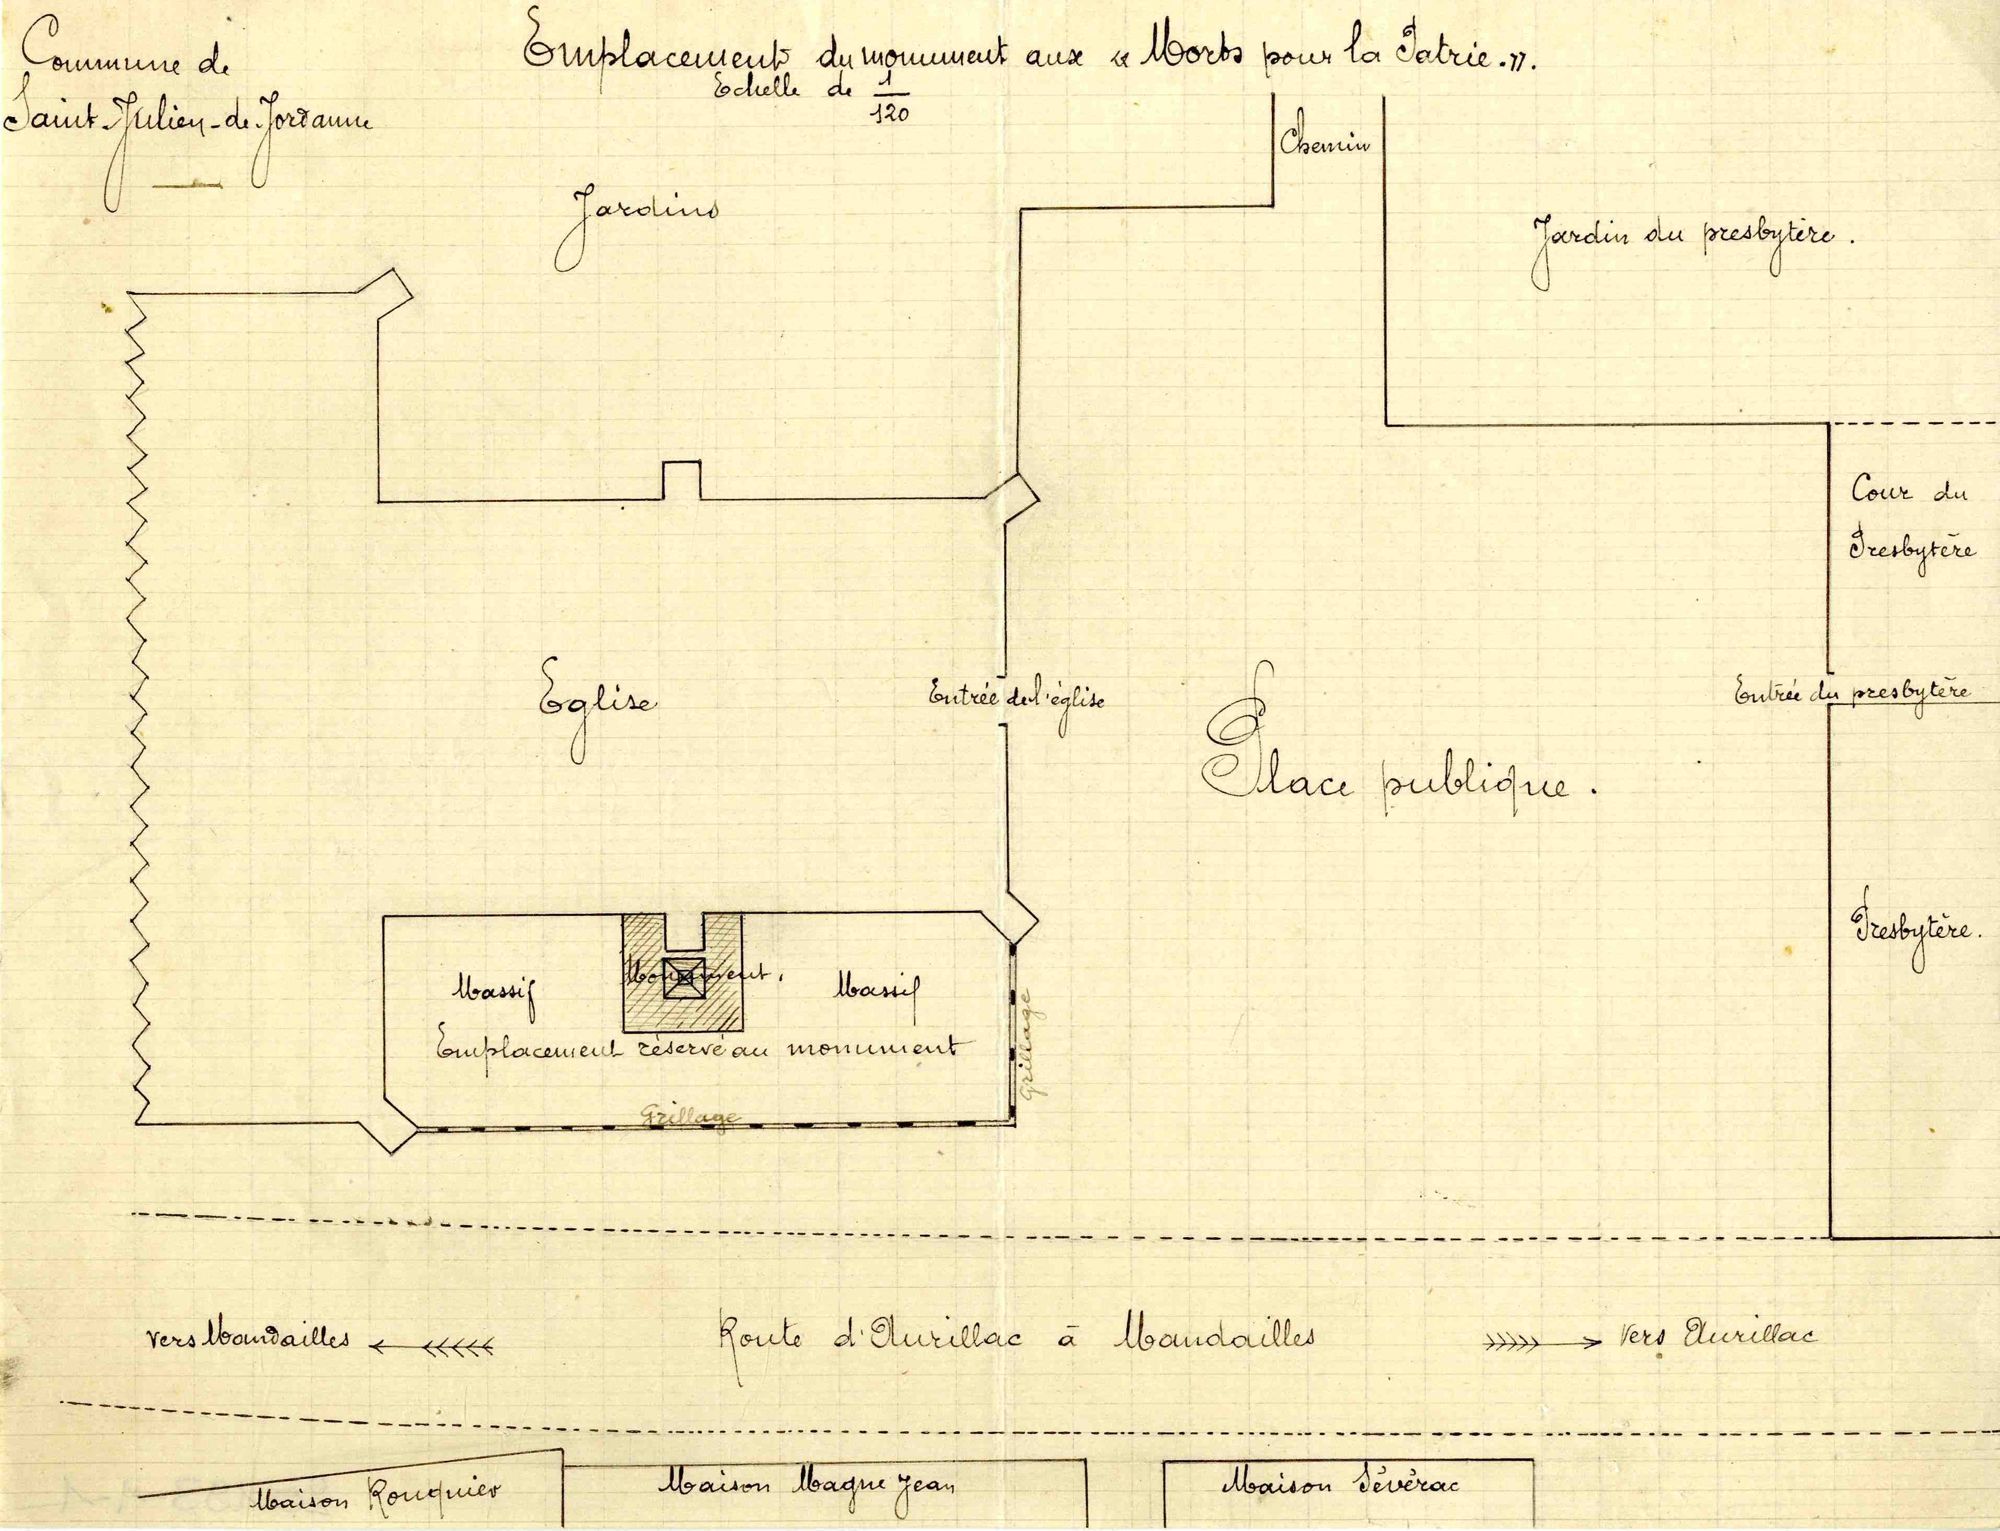 Commune de
Saint-Julien-de-Jordanne
Emplacement du monument aux « Morts pour la Patrie. ».
Echelle de 1/120
Chemin
Jardins
Jardin du presbytère.
Cour du
Presbytère
Eglise
Entrée de l'église
Entrée du presbytère
Place publique.
Presbytère.
Massif
Monument.
Massif
Emplacement réservé au monument
Grillage
Grillage
vers Mandailles
Route d'Aurillac à Mandailles
vers Aurillac
Maison Rouquier
Maison Magne Jean
Maison Sévérac